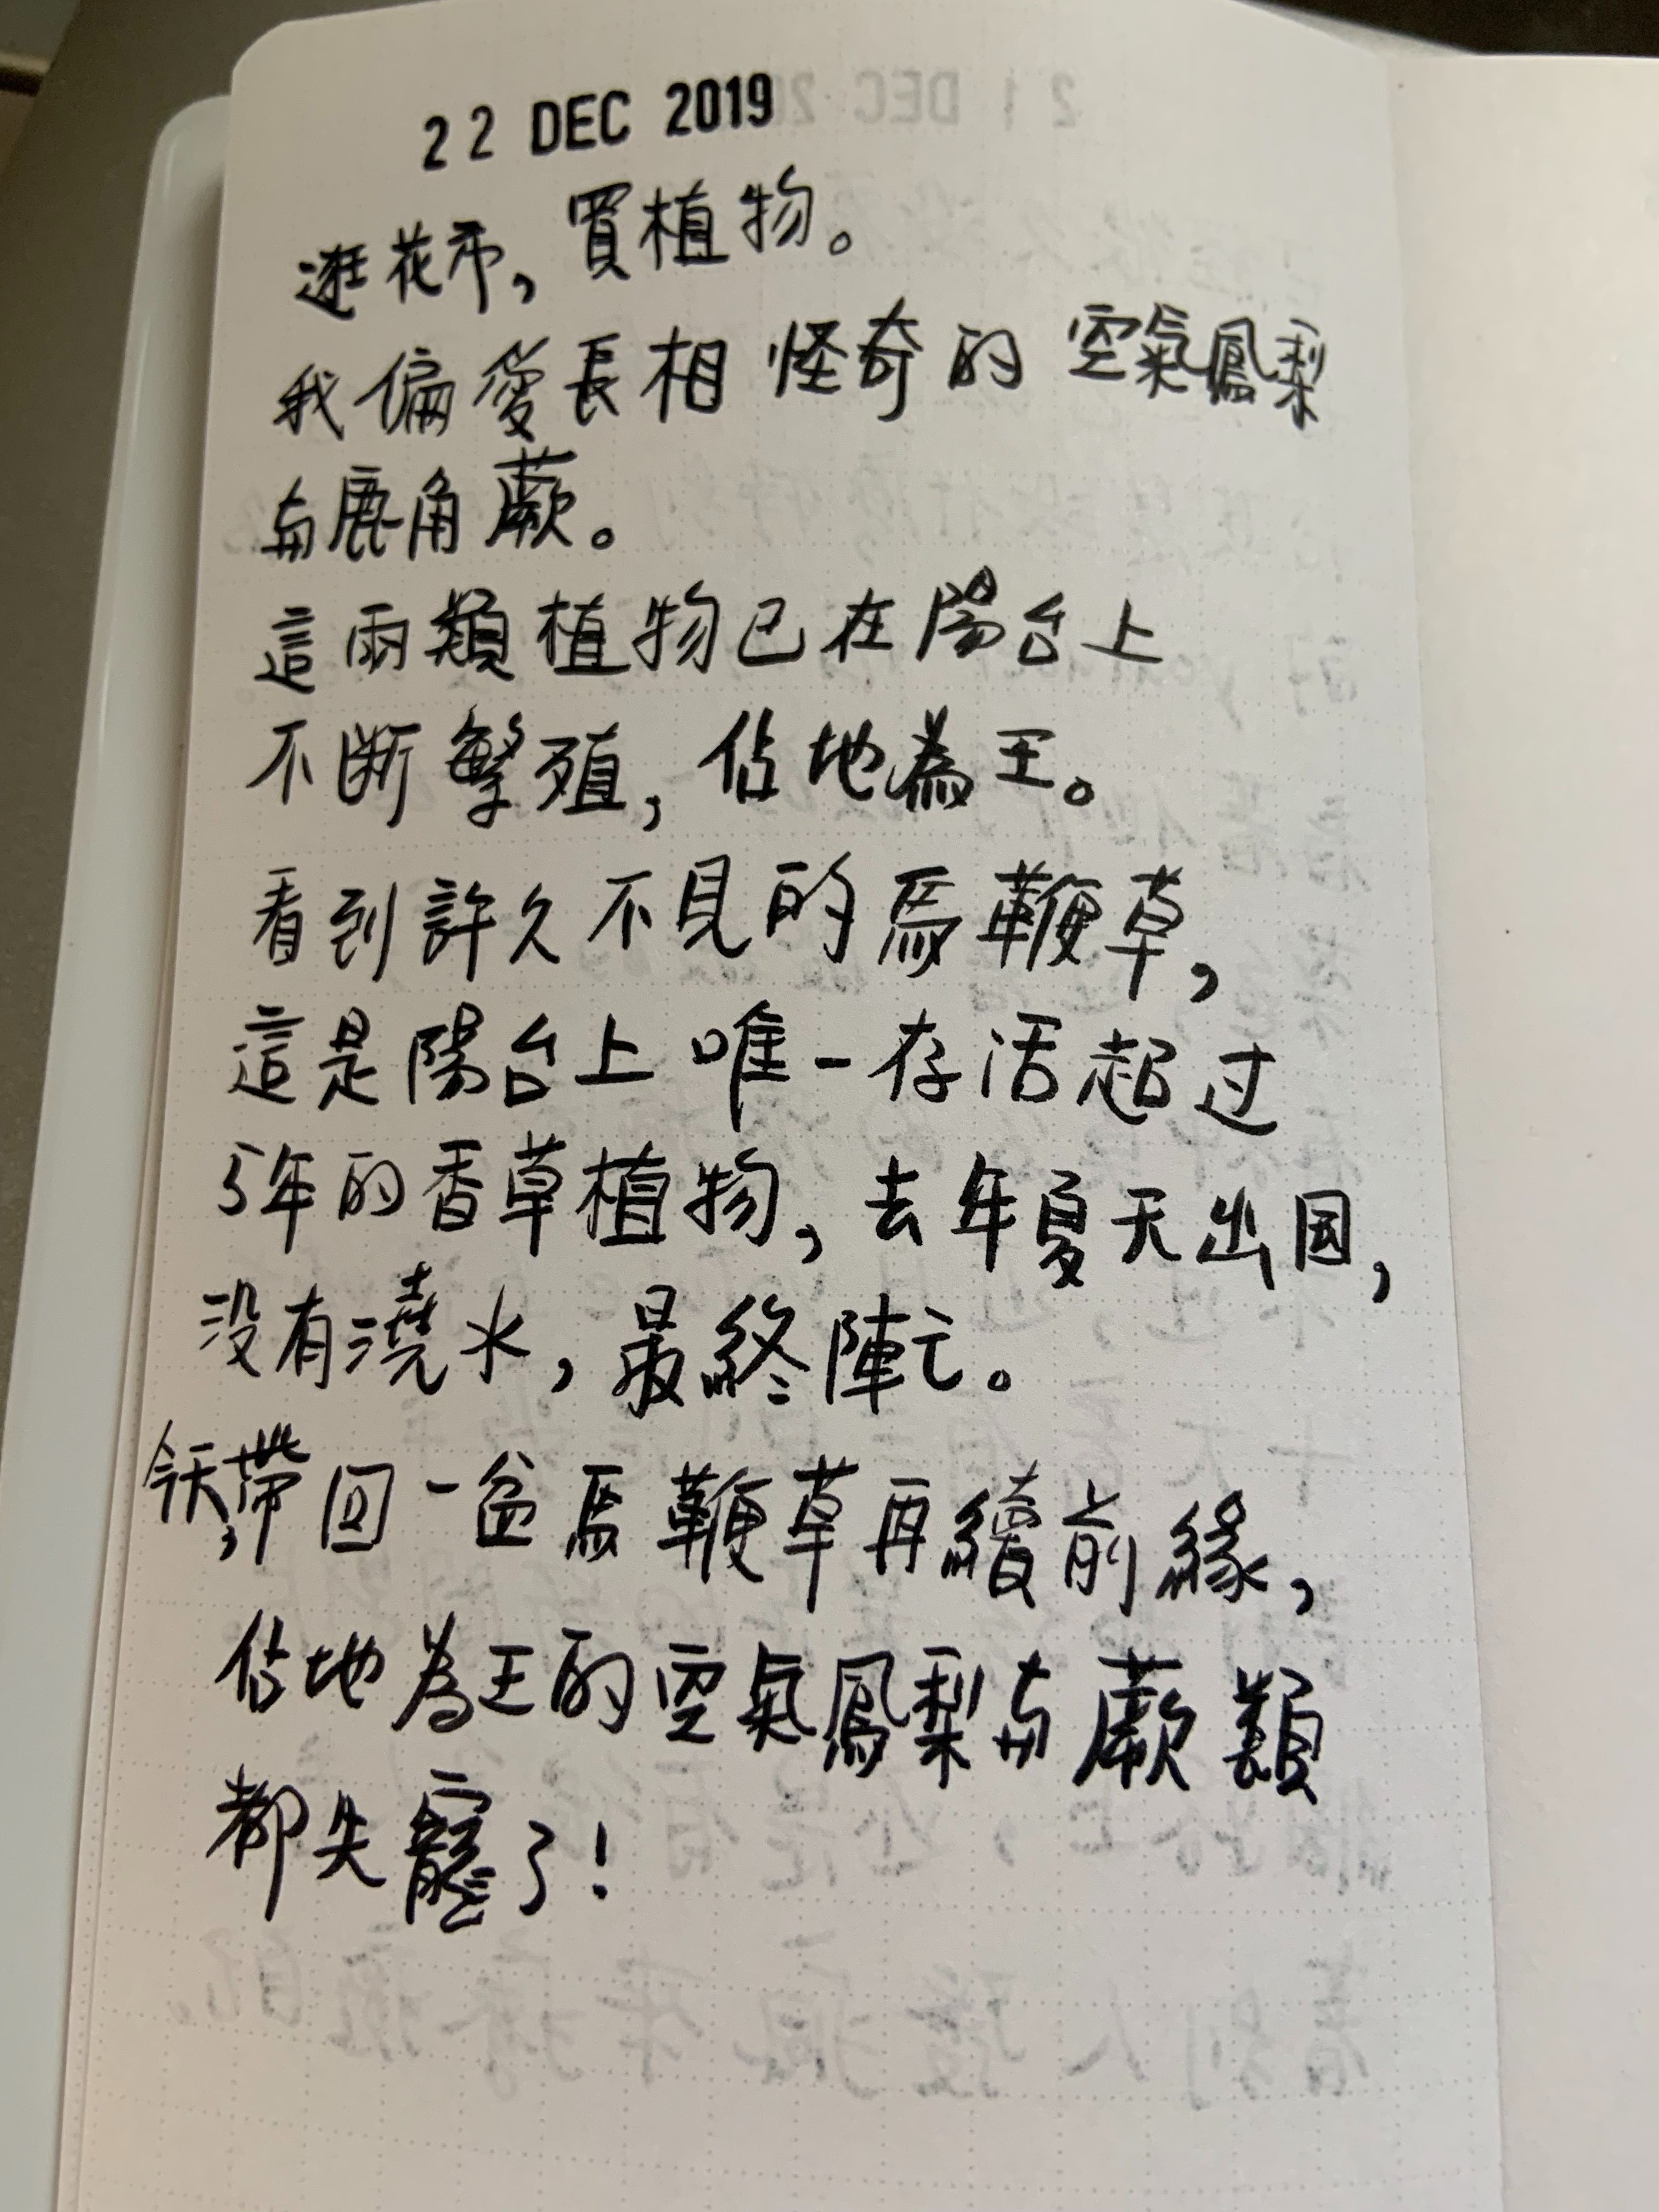 22 DEC 2019
逛花市，買植物。
我偏愛長相怪奇的空氣鳳梨
与鹿角蕨。
這兩類植物已在陽台上
不斷繁殖，佔地為王。
看到許久不見的馬鞭草，
這是陽台上唯一存活超过
5年的香草植物，去年夏天出国，
没有澆水，最終陣亡。
今天，帶回一盆馬鞭草再續前緣，
佔地為王的空氣鳳梨与蕨類
都失寵了！